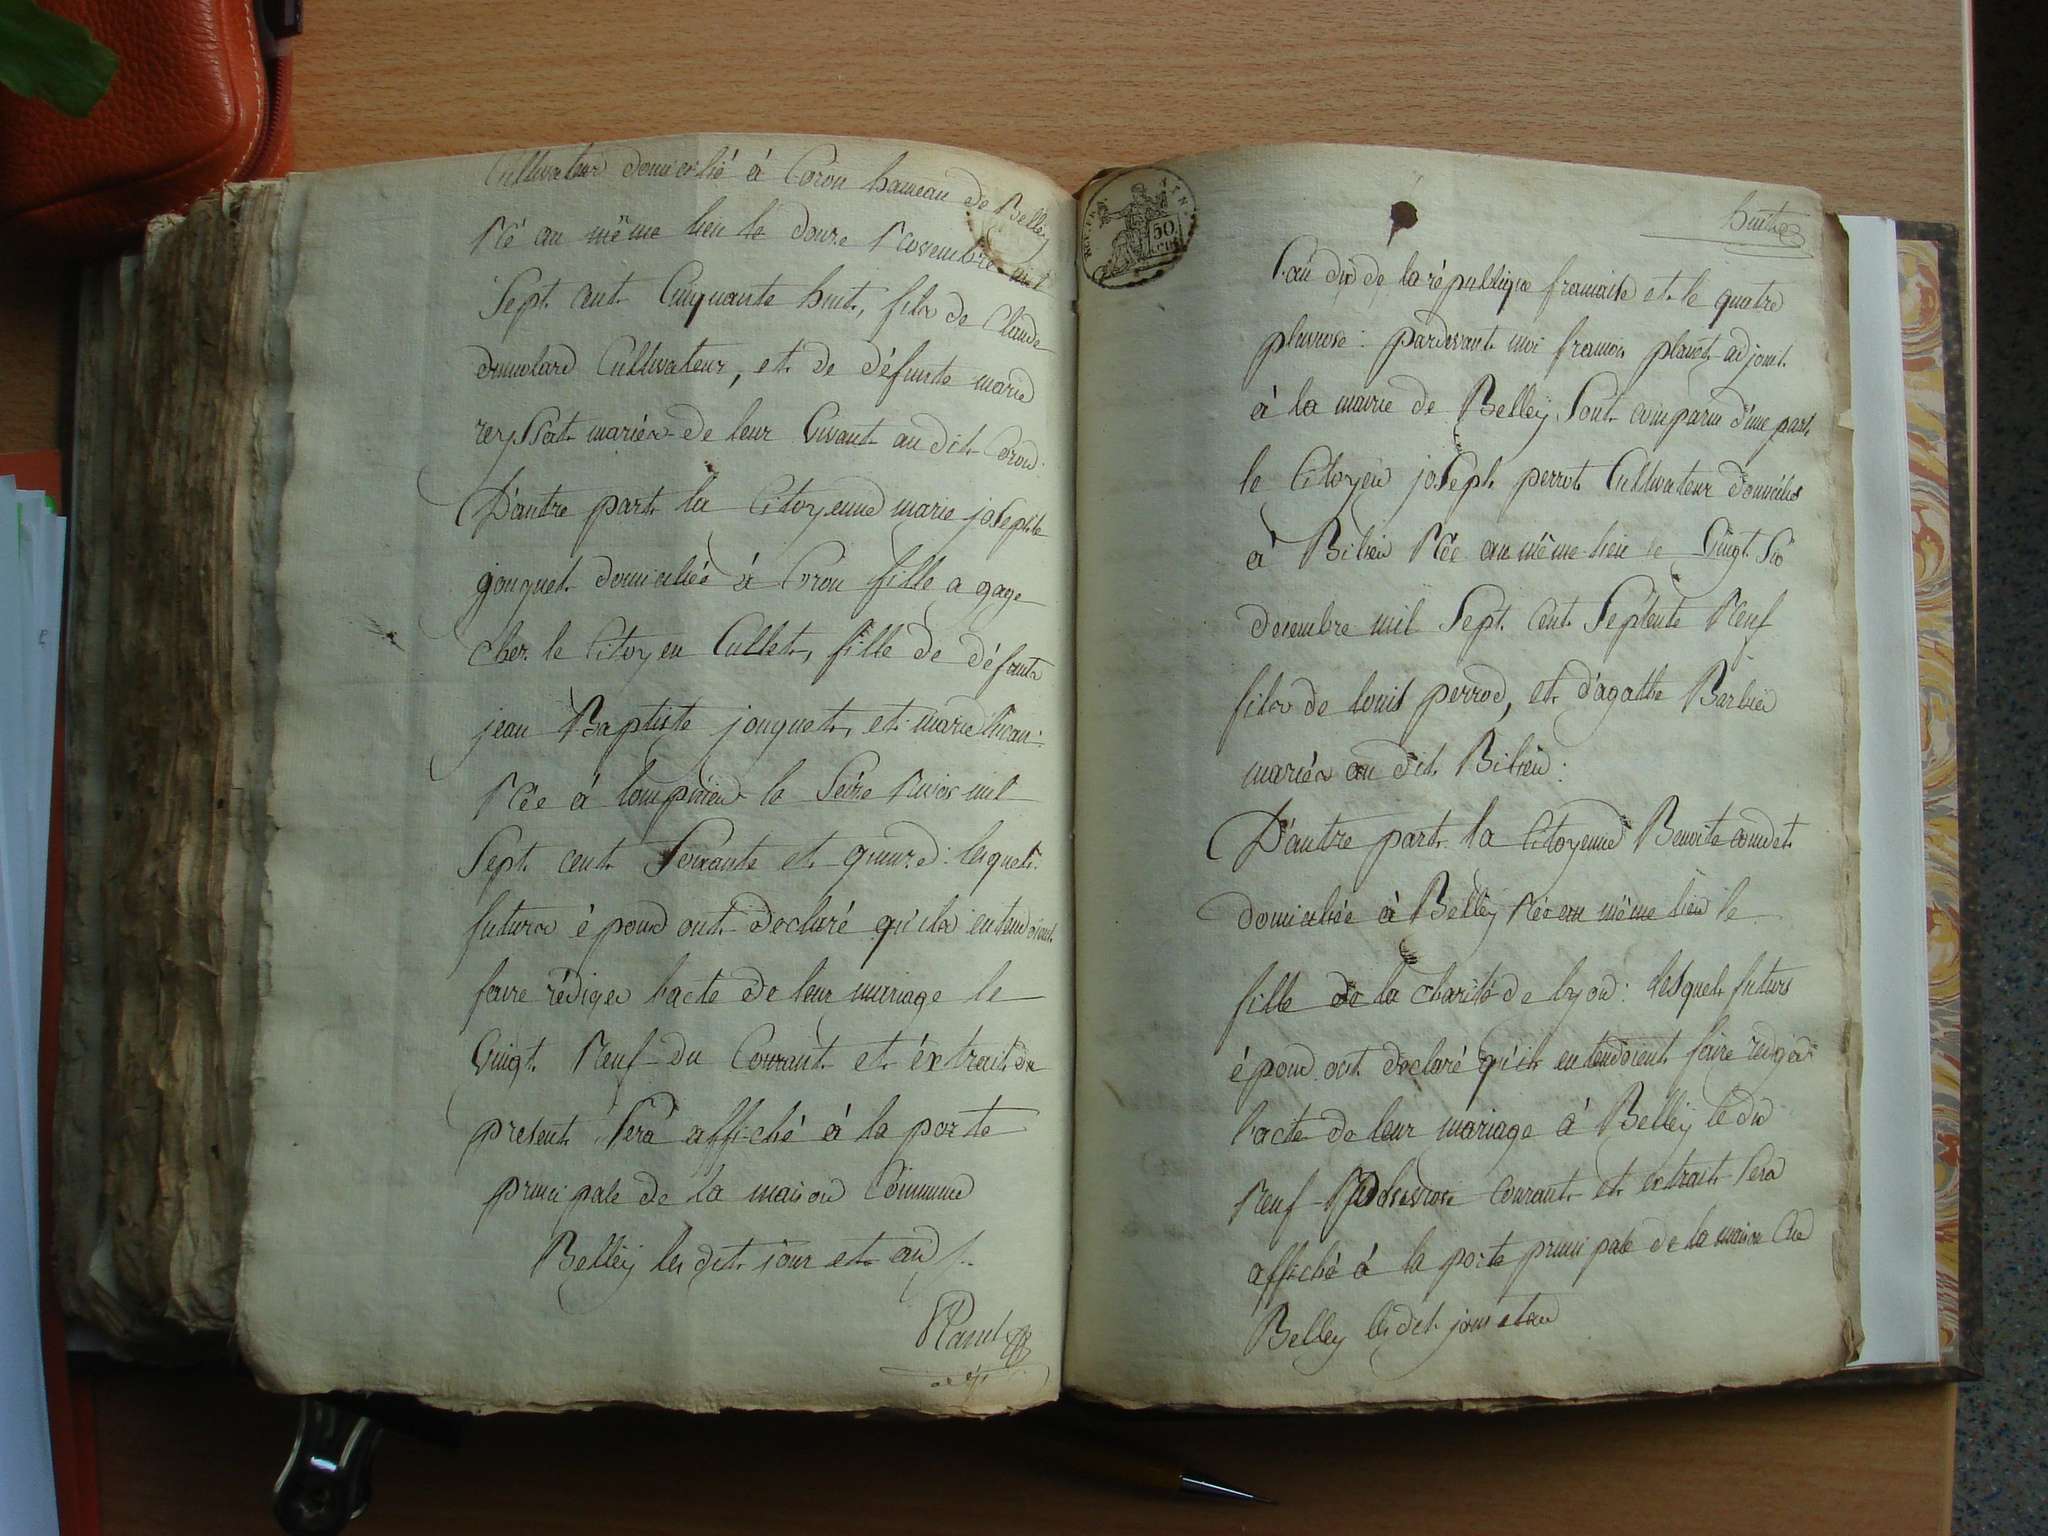 Cultivateur domicilié à Coron hameau de Belley
Né au même lieu le douze Novembre mil
Sept cent Cinquante huit, fils de Claude
dumolard Cultivateur, et de défunte marie
reyssat mariés de leur Vivant au dit Coron
D'autre part la Citoyenne marie josephte
gouquet domiciliée à Coron fille a gage
chez le Citoyen Cullet, fille de défunts
jean Baptiste jouquet, et marie
Née à lompnieu le Seize mil
Sept cent Soixante et quinze : lesquels
futurs époux ont déclaré qu'ils entendoient
faire rédiger l'acte de leur mariage le
Vingt Neuf du Courant et éxtrait du
present Sera affiché à la porte
principale de la maison Commune
Belley les dit jour et an
Planet
huit
l'an dix de la république francaise et le quatre
pluviose : pardevant moi francois planet adjoint
à la mairie de Belleÿ Sont comparu d'une part
le Citoyen joseph perrot Cultivateur domicilié
à Bilieu Née au même lieu le Vingt Six
decembre mil Sept Cent Septente Neuf
fils de louis perrod, et d'agathe Barbier
mariés au dit Bilieu :
D'autre part la Citoyenne Benoite coudet
domiciliée à Belleÿ Née au même lieu le
fille de la charité de lyon : lesquels futurs
époux ont declaré qu'ils entendoient faire rediger
l'acte de leur mariage à Belleÿ le dix
Neuf courant et extrait Sera
affiché à la porte principale de la maison Cne
Belley les dit jour et an
50